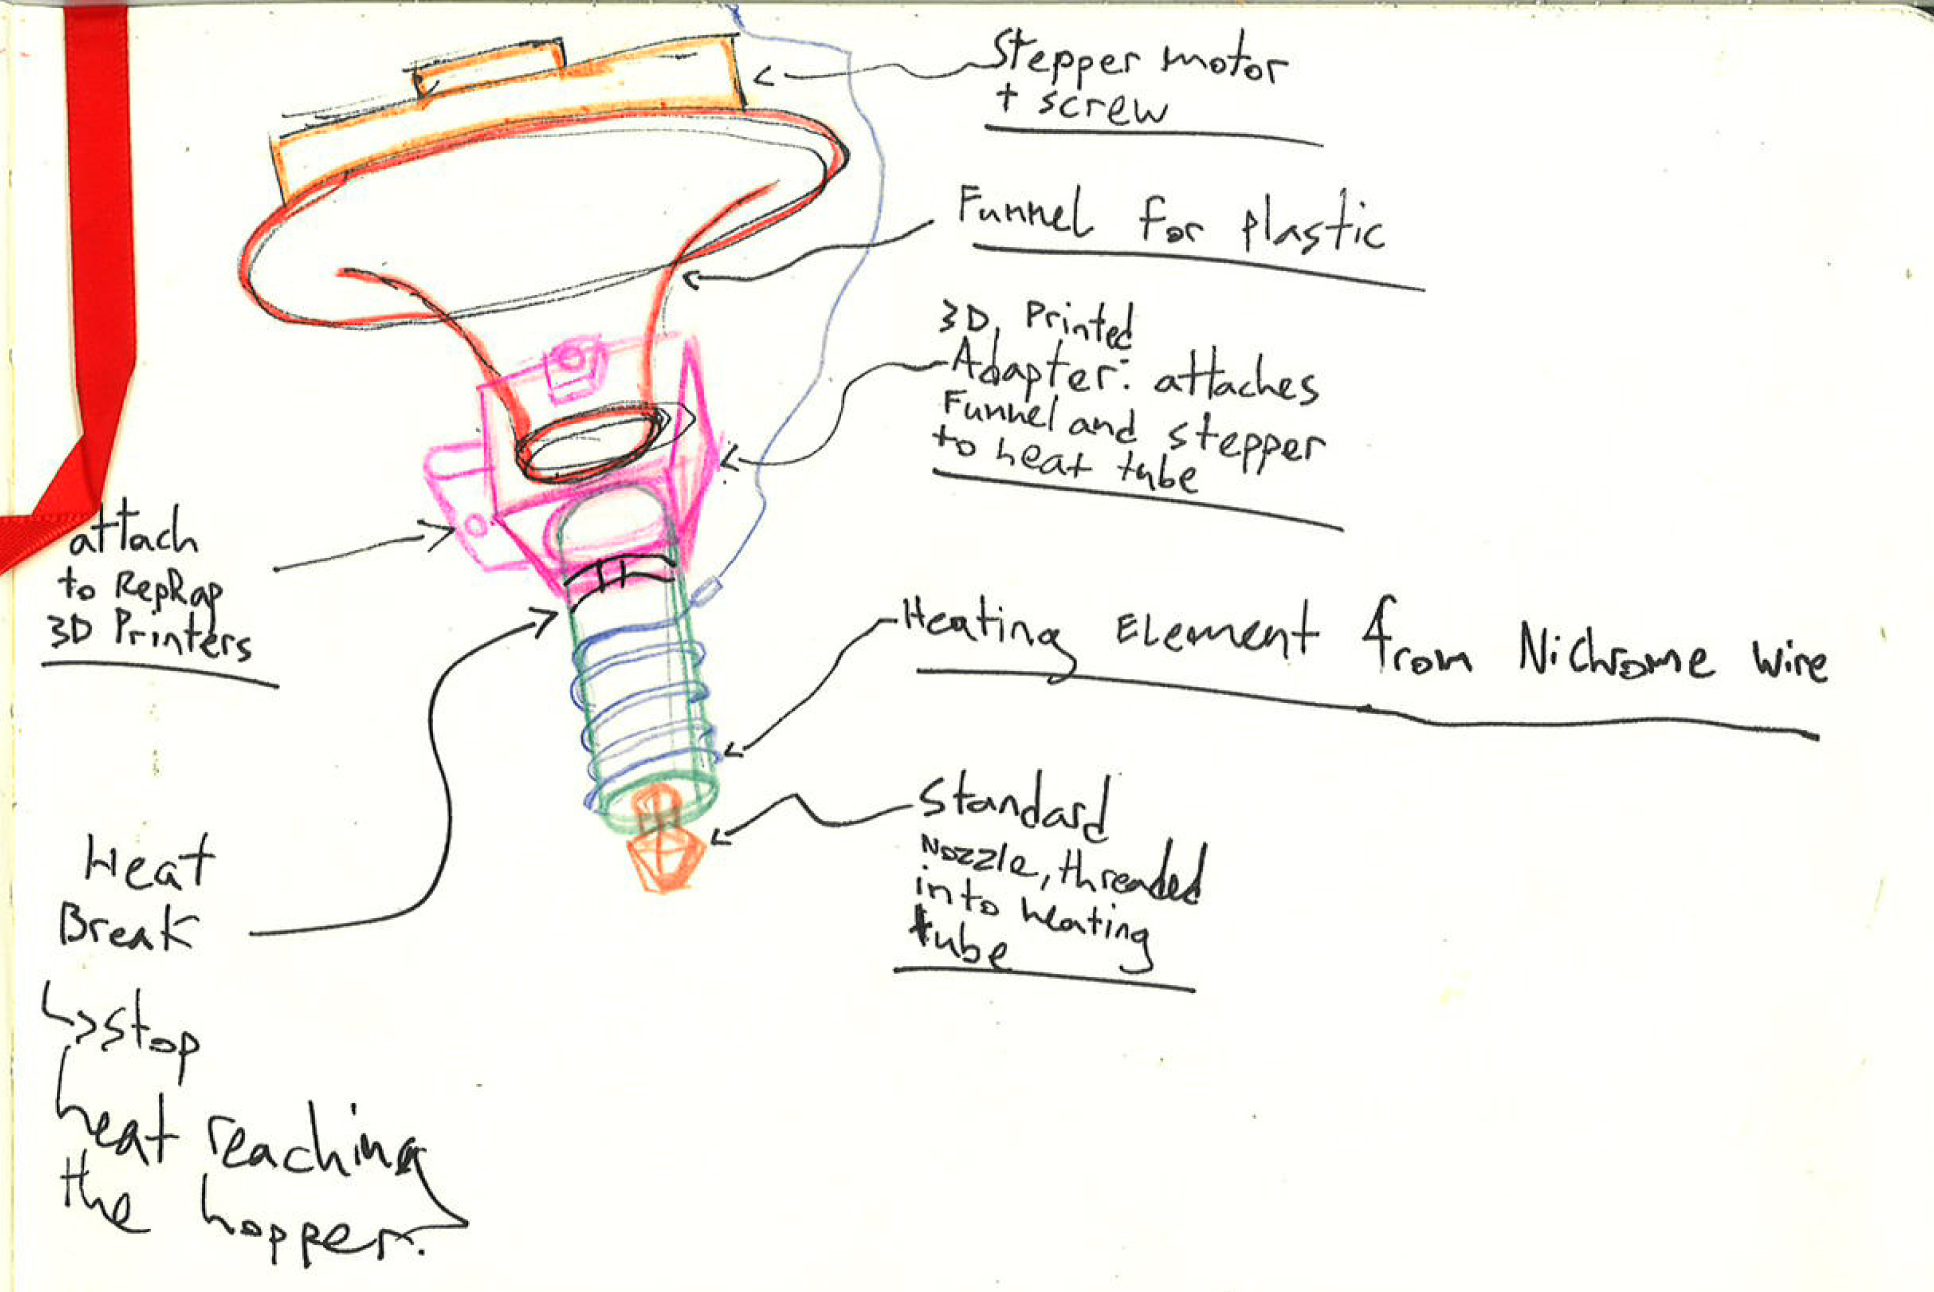 Stepper motor
+ screw
Funnel for plastic
3D Printed
Adapter: attaches
Funnel and stepper
to heat tube
attach
to RepRap
3D Printers
Heating Element from Nichrome wire
Standard
Nozzle, threaded
into heating
tube
Heat
Break
↳stop
heat reaching
the hopper.